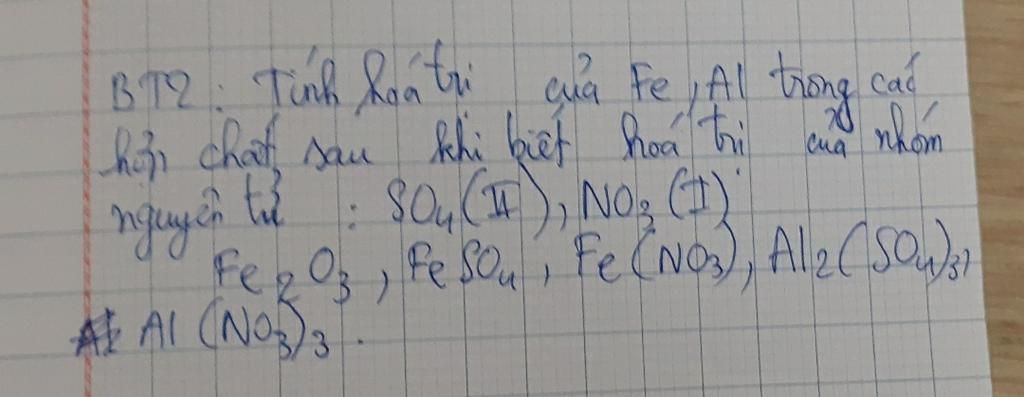 BT2: Tính hoá trị của Fe, Al trong các
hợp chất sau khi biết hoá trị của nhóm
nguyên tử : SO₄(II), NO₃(I)
Fe₂O₃, FeSO₄, Fe(NO₃), Al₂(SO₄)₃,
Al(NO₃)₃.